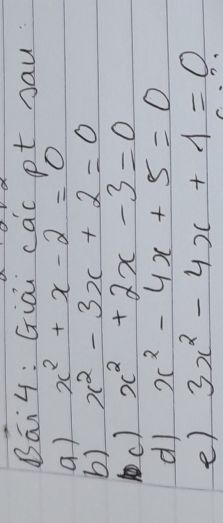 Bài 4: Giải các pt sau:
a) x² + x - 2 = 0
b) x² - 3x + 2 = 0
c) x² + 2x - 3 = 0
d) x² - 4x + 5 = 0
e) 3x² - 4x + 1 = 0